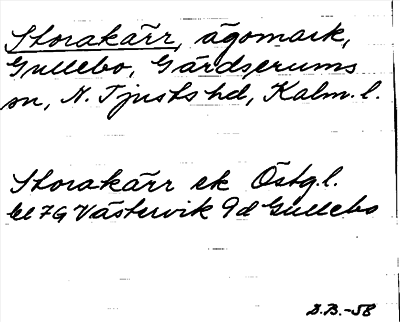 Storakärr, ägomark,
Gullebo, Gärdserums
sn, N. Tjusts hd, Kalm. l.
Storakärr ek Östg.l.
bl 7G Västervik 9d Gullebo
D.B.-58